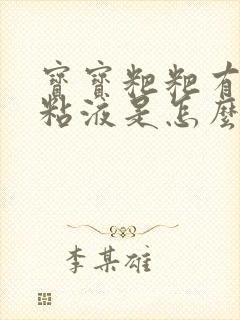 寶寶粑粑有
粘液是怎麼
李某雄